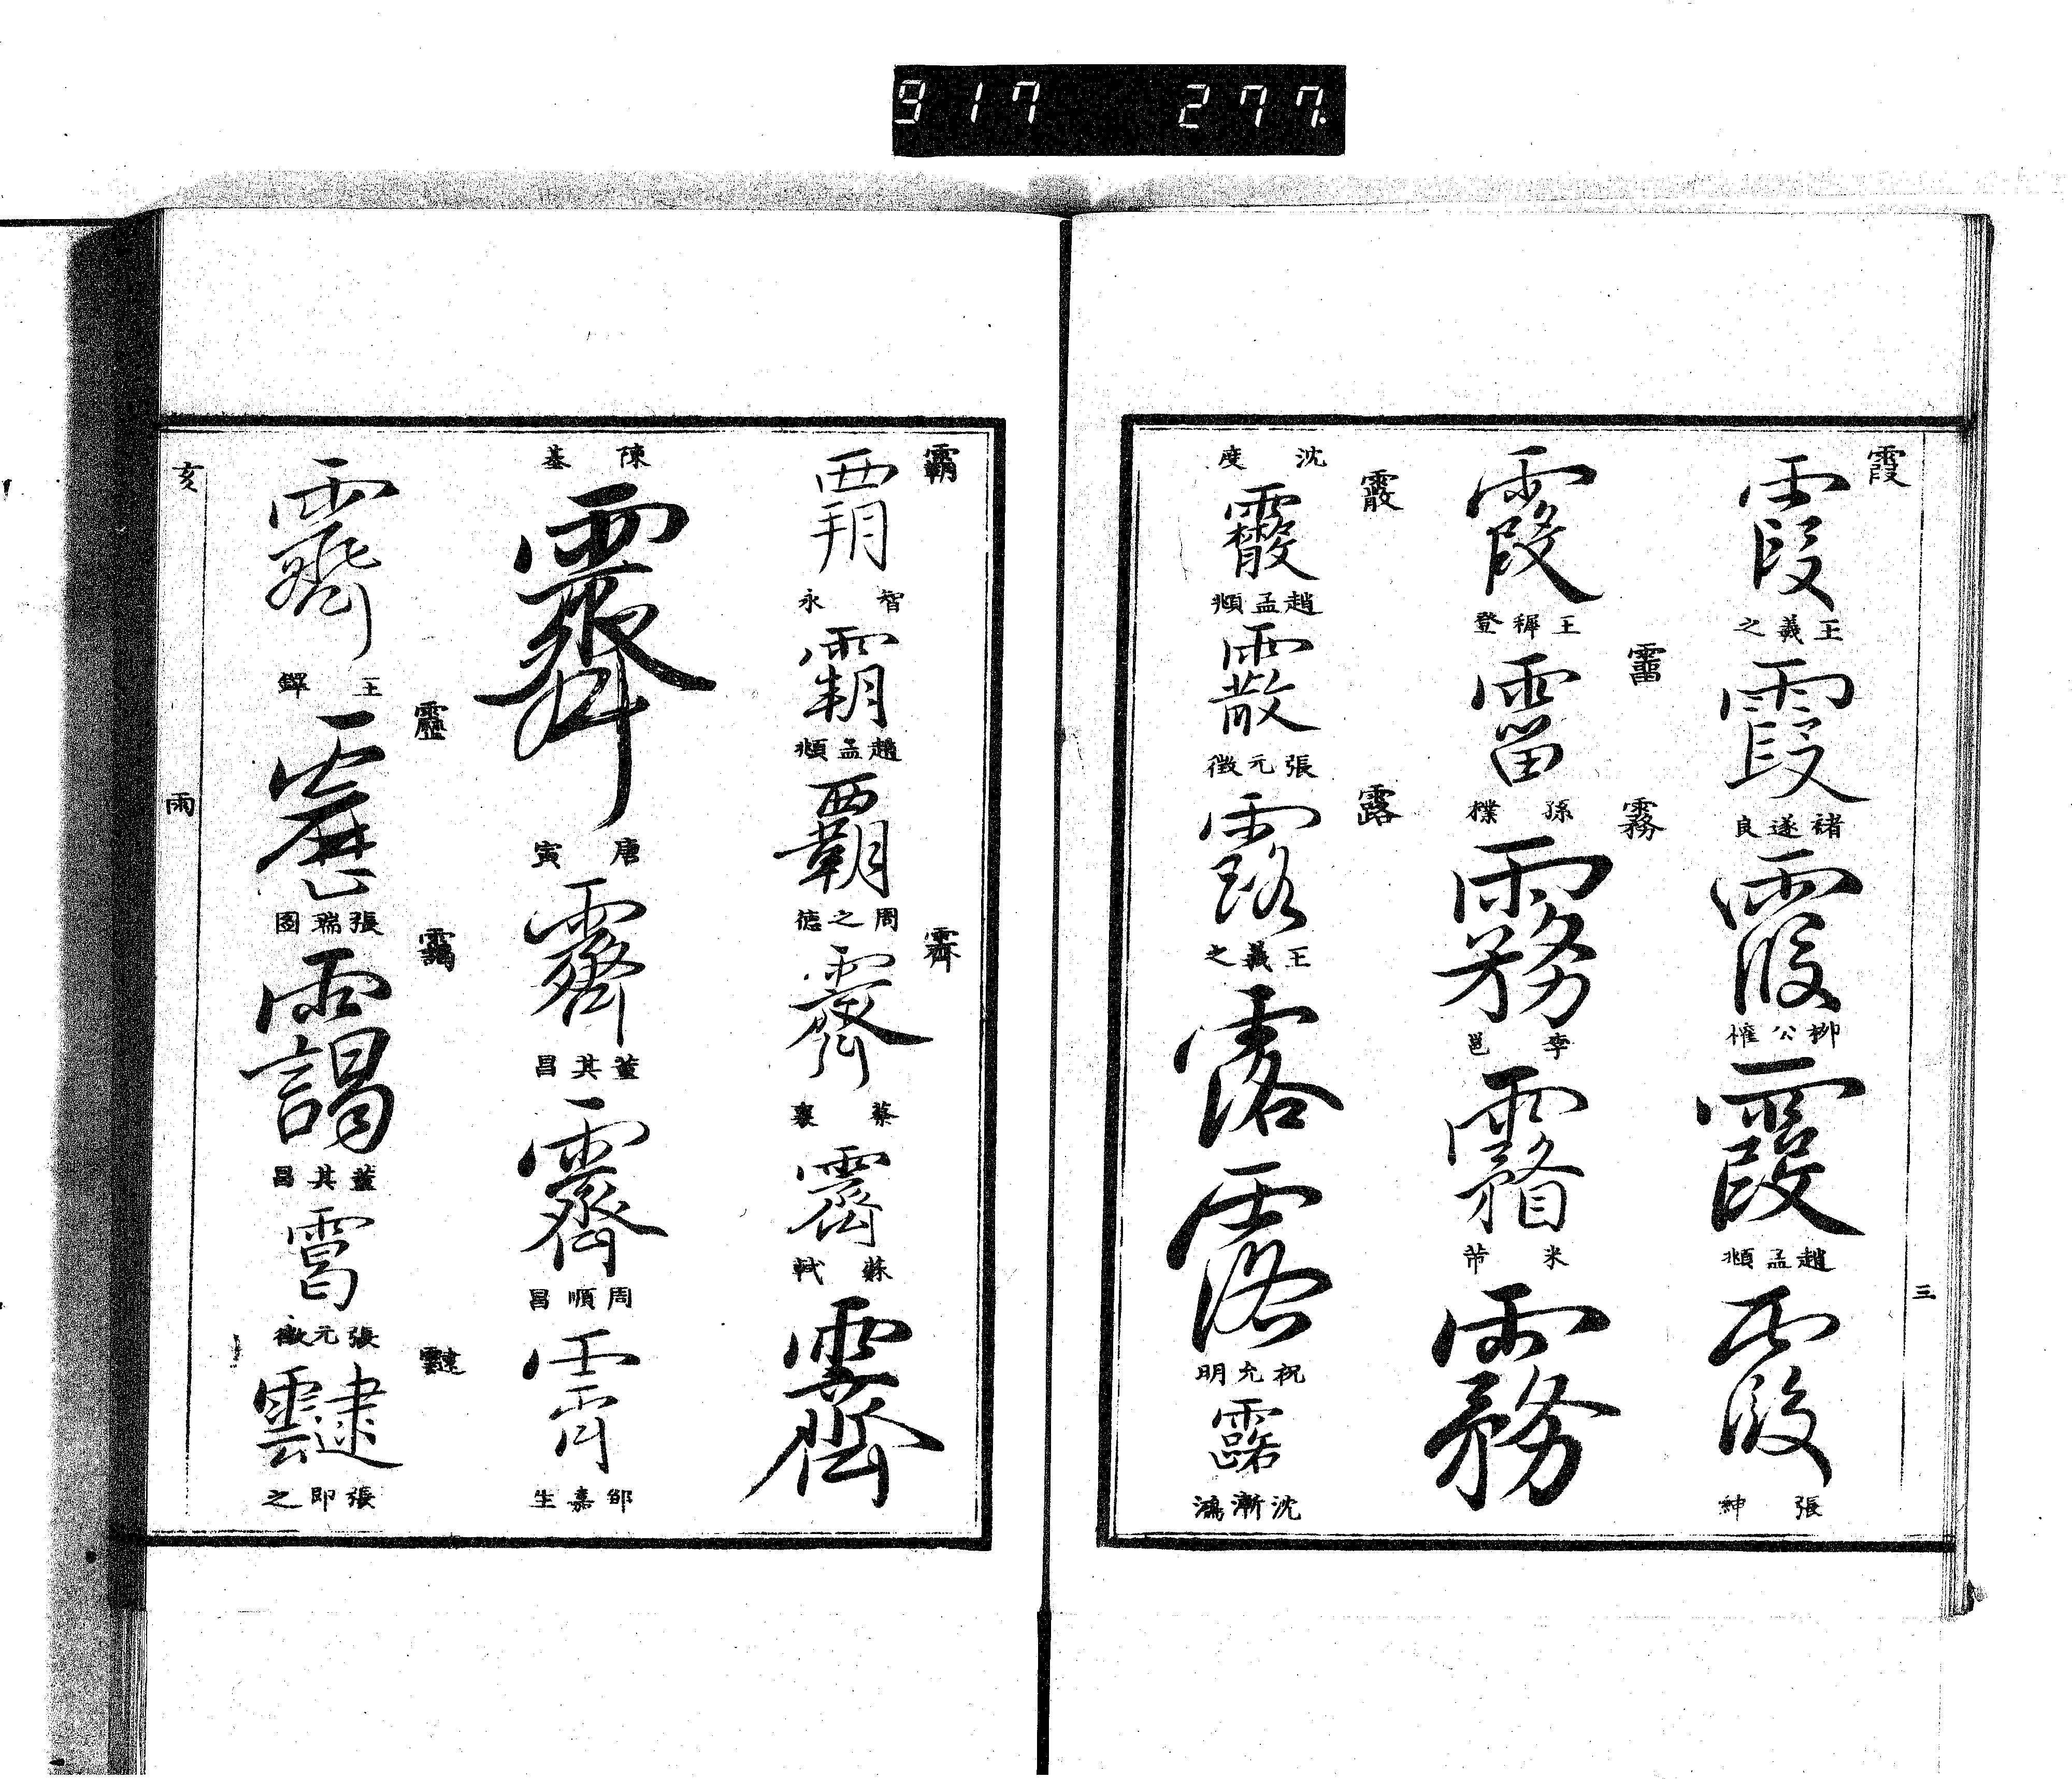 917 277
霞
霞
王羲之
霞
褚遂良
霞
柳公權
霞
趙孟頫
霞
張紳
三
霞
王穉登
霤
霤
孫樸
霧
霧
李邕
霧
米芾
霧
沈度
霰
霰
趙孟頫
霰
張元徵
露
露
王羲之
露
露
祝允明
露
沈漸鴻
霸
霸
智永
霸
趙孟頫
霸
周之德
霽
霽
蔡襄
霽
蘇軾
霽
陳基
霽
唐寅
霽
董其昌
霽
周順昌
霽
邹嘉生
霽
王鐸
靂
張瑞圖
靄
靄
董其昌
張元徵
靆
靆
張即之
亥
雨